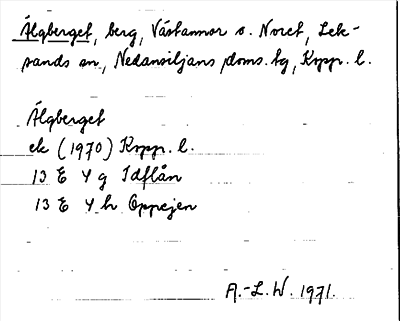 Älgberget, berg, Västannor o. Noret, Lek-
sands sn, Nedansiljans doms. tg, Kopp. l.
Älgberget
ek (1970) Kopp. l.
13 E 4 g Idflån
13 E 4 h Oppejen
A.-L. W. 1971.